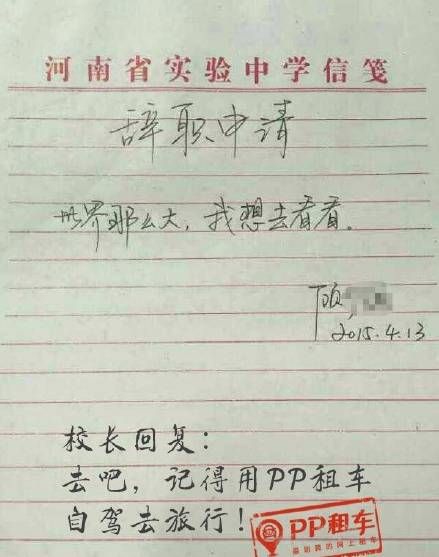 河南省实验中学信笺
辞职申请
世界那么大，我想去看看。
顾
2015.4.13
校长回复：
去吧，记得用PP租车
自驾去旅行！
PP租车